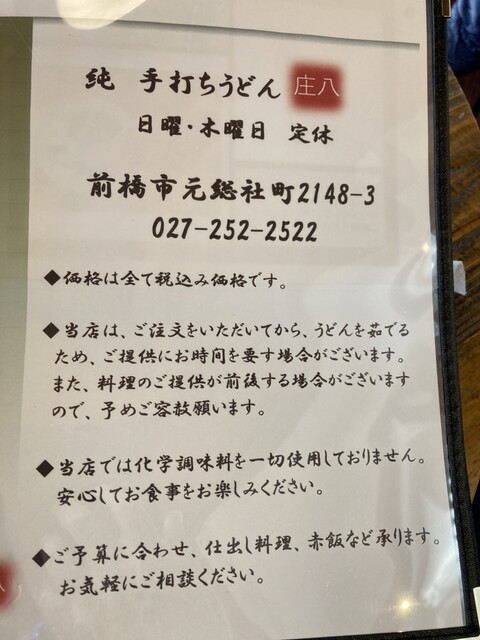 純 手打ちうどん 庄八
日曜・木曜日 定休
前橋市元総社町2148-3
027-252-2522
◆価格は全て税込み価格です。
◆当店は、ご注文をいただいてから、うどんを茹でる
ため、ご提供にお時間を要す場合がございます。
また、料理のご提供が前後する場合がございます
ので、予めご容赦願います。
◆当店では化学調味料を一切使用しておりません。
安心してお食事をお楽しみください。
◆ご予算に合わせ、仕出し料理、赤飯など承ります。
お気軽にご相談ください。
八